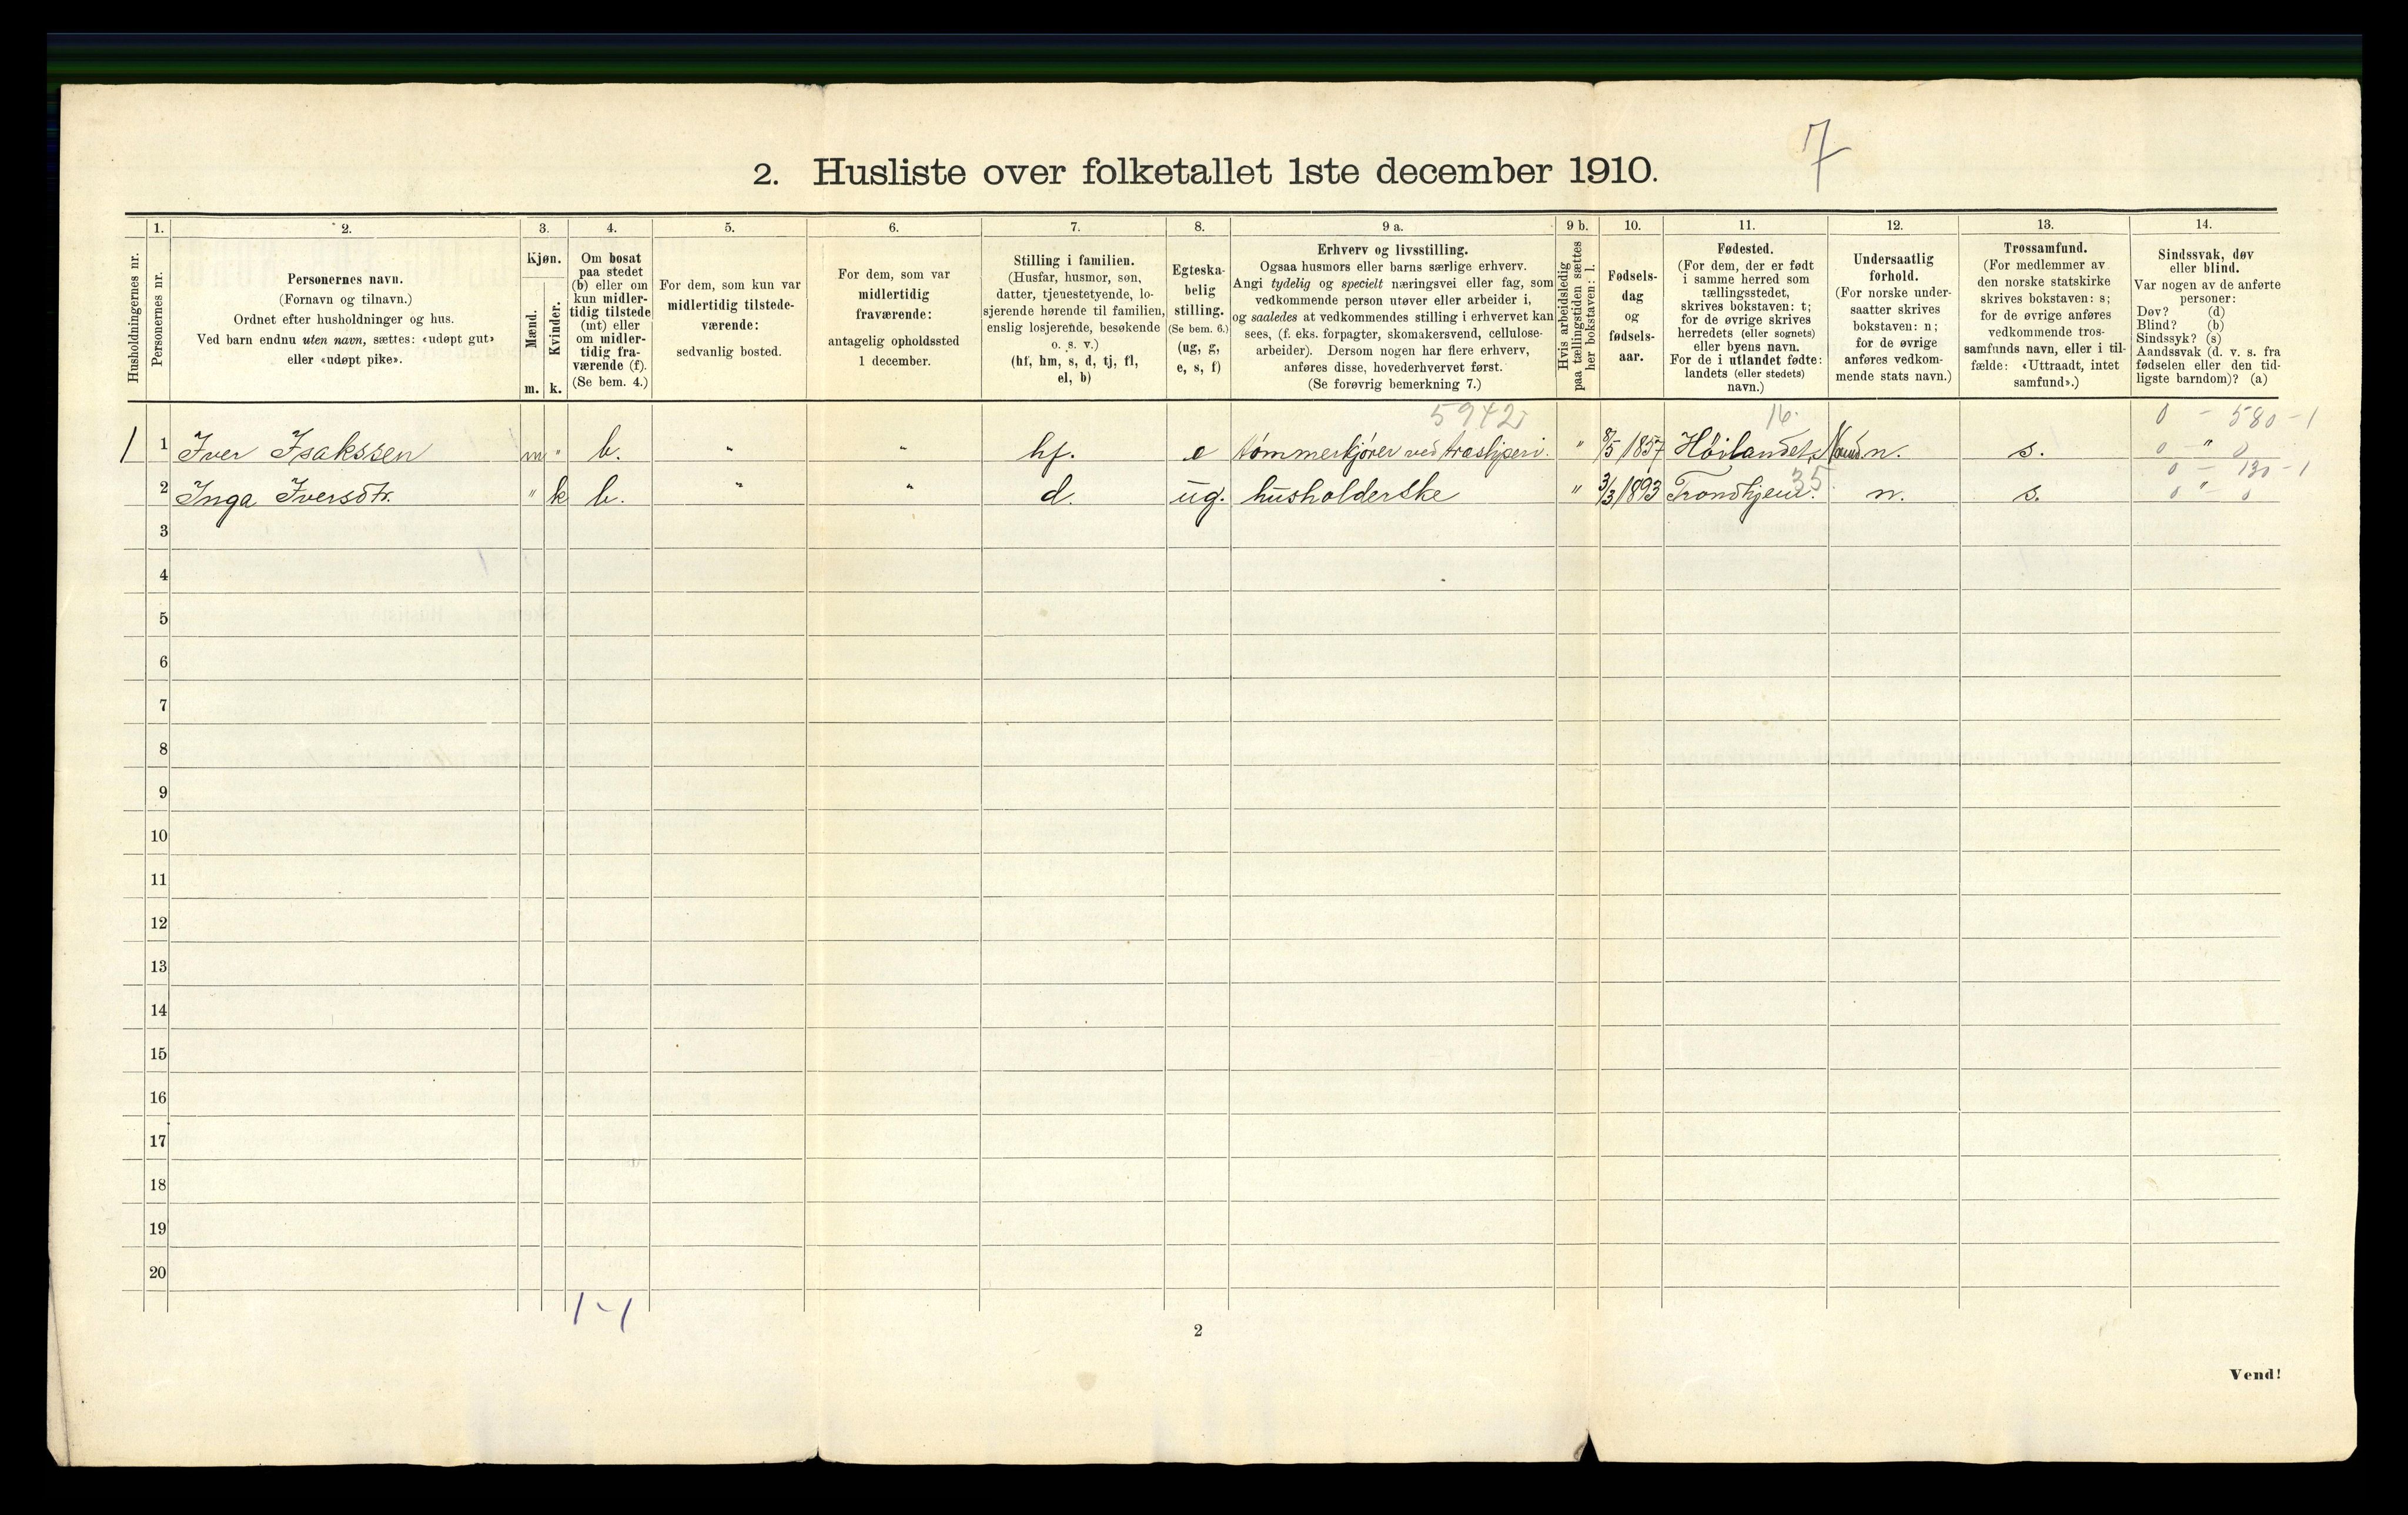 7
2. Husliste over folketallet 1ste december 1910.
Husholdningernes nr.
1.
Personernes nr.
2.
Personernes navn.
(Fornavn og tilnavn.)
Ordnet efter husholdninger og hus.
Ved barn endnu uten navn, sættes: «udøpt gut»
eller «udøpt pike».
3.
Kjøn.
Mænd.
m.
Kvinder.
k.
4.
Om bosat
paa stedet
(b) eller om
kun midler-
tidig tilstede
(mt) eller
om midler-
tidig fra-
værende (f).
(Se bem. 4.)
5.
For dem, som kun var
midlertidig tilstede-
værende:
sedvanlig bosted.
6.
For dem, som var
midlertidig
fraværende:
antagelig opholdssted
1 december.
7.
Stilling i familien.
(Husfar, husmor, søn,
datter, tjenestetyende, lo-
sjerende hørende til familien,
enslig losjerende, besøkende
o. s. v.)
(hf, hm, s, d, tj, fl,
el, b)
8.
Egteska-
belig
stilling.
(Se bem. 6.)
(ug, g,
e, s, f)
9 a.
Erhverv og livsstilling.
Ogsaa husmors eller barns særlige erhverv.
Angi tydelig og specielt næringsvei eller fag, som
vedkommende person utøver eller arbeider i,
og saaledes at vedkommendes stilling i erhvervet kan
sees, (f. eks. forpagter, skomakersvend, cellulose-
arbeider). Dersom nogen har flere erhverv,
anføres disse, hovederhvervet først.
(Se forøvrig bemerkning 7.)
9 b.
Hvis arbeidsledig
paa tællingstiden sættes
her bokstaven: l.
10.
Fødsels-
dag
og
fødsels-
aar.
11.
Fødested.
(For dem, der er født
i samme herred som
tællingsstedet,
skrives bokstaven: t;
for de øvrige skrives
herredets (eller sognets)
eller byens navn.
For de i utlandet fødte:
landets (eller stedets)
navn.)
12.
Undersaatlig
forhold.
(For norske under-
saatter skrives
bokstaven: n;
for de øvrige
anføres vedkom-
mende stats navn.)
13.
Trossamfund.
(For medlemmer av
den norske statskirke
skrives bokstaven: s;
for de øvrige anføres
vedkommende tros-
samfunds navn, eller i til-
fælde: «Uttraadt, intet
samfund».)
14.
Sindssvak, døv
eller blind.
Var nogen av de anførte
personer:
Døv? (d)
Blind? (b)
Sindssyk? (s)
Aandssvak (d. v. s. fra
fødselen eller den tid-
ligste barndom)? (a)
16. 0 - 580 - 1
1 1 Iver Isakssen m " b. " " hf. e tømmerkjører ved " 8/5 1857 Høilandet, n. s. 0 - " 0
35. 0 - 130 - 1
2 Inga Iversdtr. " k b. " " d. ug. husholderske " 3/3 1893 Trondhjem. n. s. 0 " 0
3
4
5
6
7
8
9
10
11
12
13
14
15
16
17
18
19
20
1 - 1
2
Vend!